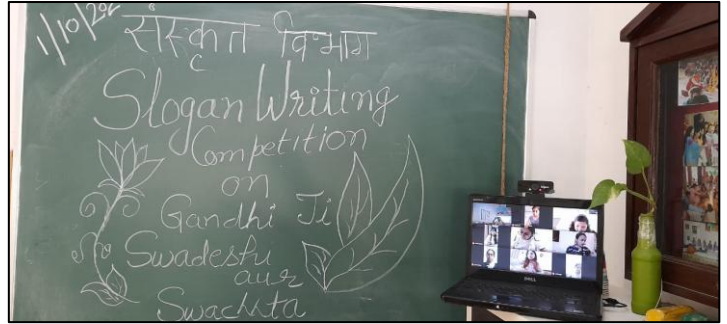 1/10/202
संस्कृत विभाग
Slogan Writing
Competition
on
Gandhi Ji
Swadeshi
aur
Swachhta
DELL